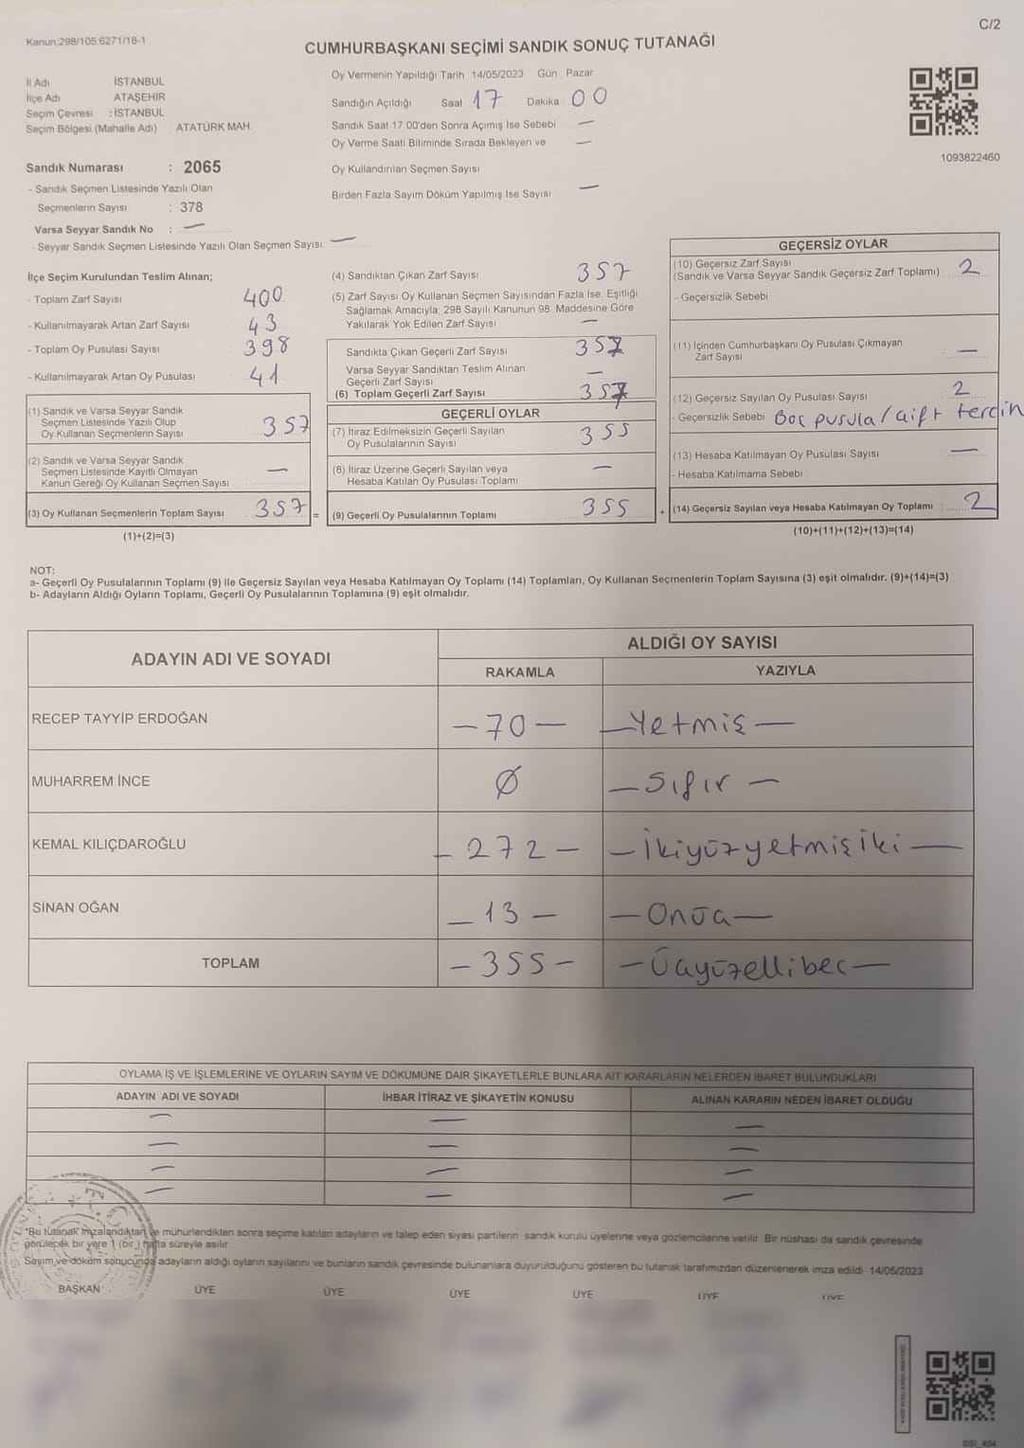 C/2
Kanun:298/105:6271/18-1
CUMHURBAŞKANI SEÇİMİ SANDIK SONUÇ TUTANAĞI
İl Adı İSTANBUL
İlçe Adı ATAŞEHİR
Seçim Çevresi : İSTANBUL
Seçim Bölgesi (Mahalle Adı) ATATÜRK MAH.
Oy Vermenin Yapıldığı Tarih 14/05/2023 Gün Pazar
Sandığın Açıldığı Saat 17 Dakika 00
Sandık Saat 17.00'den Sonra Açımış İse Sebebi —
Oy Verme Saati Bitiminde Sırada Bekleyen ve —
Oy Kullandırılan Seçmen Sayısı
Birden Fazla Sayım Döküm Yapılmış İse Sayısı —
1093822460
Sandık Numarası : 2065
- Sandık Seçmen Listesinde Yazılı Olan
Seçmenlerin Sayısı : 378
Varsa Seyyar Sandık No : —
- Seyyar Sandık Seçmen Listesinde Yazılı Olan Seçmen Sayısı: —
İlçe Seçim Kurulundan Teslim Alınan;
- Toplam Zarf Sayısı 400
- Kullanılmayarak Artan Zarf Sayısı 43
- Toplam Oy Pusulası Sayısı 398
- Kullanılmayarak Artan Oy Pusulası 41
(1) Sandık ve Varsa Seyyar Sandık
Seçmen Listesinde Yazılı Olup
Oy Kullanan Seçmenlerin Sayısı 357
(2) Sandık ve Varsa Seyyar Sandık
Seçmen Listesinde Kayıtlı Olmayan
Kanun Gereği Oy Kullanan Seçmen Sayısı —
(3) Oy Kullanan Seçmenlerin Toplam Sayısı 357 =
(1)+(2)=(3)
(4) Sandıktan Çıkan Zarf Sayısı 357
(5) Zarf Sayısı Oy Kullanan Seçmen Sayısından Fazla İse, Eşitliği
Sağlamak Amacıyla, 298 Sayılı Kanunun 98. Maddesine Göre
Yakılarak Yok Edilen Zarf Sayısı —
Sandıkta Çıkan Geçerli Zarf Sayısı 357
Varsa Seyyar Sandıktan Teslim Alınan
Geçerli Zarf Sayısı —
(6) Toplam Geçerli Zarf Sayısı 357
GEÇERLİ OYLAR
(7) İtiraz Edilmeksizin Geçerli Sayılan
Oy Pusulalarının Sayısı 355
(8) İtiraz Üzerine Geçerli Sayılan veya
Hesaba Katılan Oy Pusulası Toplamı —
(9) Geçerli Oy Pusulalarının Toplamı 355 +
GEÇERSİZ OYLAR
(10) Geçersiz Zarf Sayısı
(Sandık ve Varsa Seyyar Sandık Geçersiz Zarf Toplamı) 2
- Geçersizlik Sebebi
(11) İçinden Cumhurbaşkanı Oy Pusulası Çıkmayan
Zarf Sayısı —
(12) Geçersiz Sayılan Oy Pusulası Sayısı 2
- Geçersizlik Sebebi Boş pusula / çift tercih
(13) Hesaba Katılmayan Oy Pusulası Sayısı —
- Hesaba Katılmama Sebebi
(14) Geçersiz Sayılan veya Hesaba Katılmayan Oy Toplamı 2
(10)+(11)+(12)+(13)=(14)
NOT:
a- Geçerli Oy Pusulalarının Toplamı (9) ile Geçersiz Sayılan veya Hesaba Katılmayan Oy Toplamı (14) Toplamları, Oy Kullanan Seçmenlerin Toplam Sayısına (3) eşit olmalıdır. (9)+(14)=(3)
b- Adayların Aldığı Oyların Toplamı, Geçerli Oy Pusulalarının Toplamına (9) eşit olmalıdır.
ADAYIN ADI VE SOYADI ALDIĞI OY SAYISI
RAKAMLA YAZIYLA
RECEP TAYYİP ERDOĞAN — 70 — — Yetmiş —
MUHARREM İNCE Ø — Sıfır —
KEMAL KILIÇDAROĞLU — 272 — — İkiyüzyetmişiki —
SİNAN OĞAN — 13 — — Onüç —
TOPLAM — 355 — — Üçyüzellibeş —
OYLAMA İŞ VE İŞLEMLERİNE VE OYLARIN SAYIM VE DÖKÜMÜNE DAİR ŞİKAYETLERLE BUNLARA AİT KARARLARIN NELERDEN İBARET BULUNDUKLARI
ADAYIN ADI VE SOYADI İHBAR İTİRAZ VE ŞİKAYETİN KONUSU ALINAN KARARIN NEDEN İBARET OLDUĞU
— — —
— — —
— — —
— — —
*Bu tutanak imzalandıktan ve mühürlendikten sonra seçime katılan adayların ve talep eden siyasi partilerin sandık kurulu üyelerine veya gözlemcilerine verilir. Bir nüshası da sandık çevresinde
görülecek bir yere 1 (bir) hafta süreyle asılır.
Sayım ve döküm sonucunda adayların aldığı oyların sayılarını ve bunların sandık çevresinde bulunanlara duyurulduğunu gösteren bu tutanak tarafımızdan düzenlenerek imza edildi. 14/05/2023
BAŞKAN ÜYE ÜYE ÜYE ÜYE ÜYE ÜYE